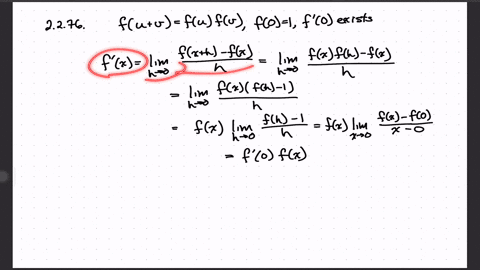 2.2.76. f(u+v) = f(u) f(v), f(0)=1, f'(0) exists
f'(x) = lim h→0 (f(x+h) - f(x))/h = lim h→0 (f(x) f(h) - f(x))/h
= lim h→0 f(x)(f(h) - 1)/h
= f(x) lim h→0 (f(h) - 1)/h = f(x) lim x→0 (f(x) - f(0))/(x - 0)
= f'(0) f(x)